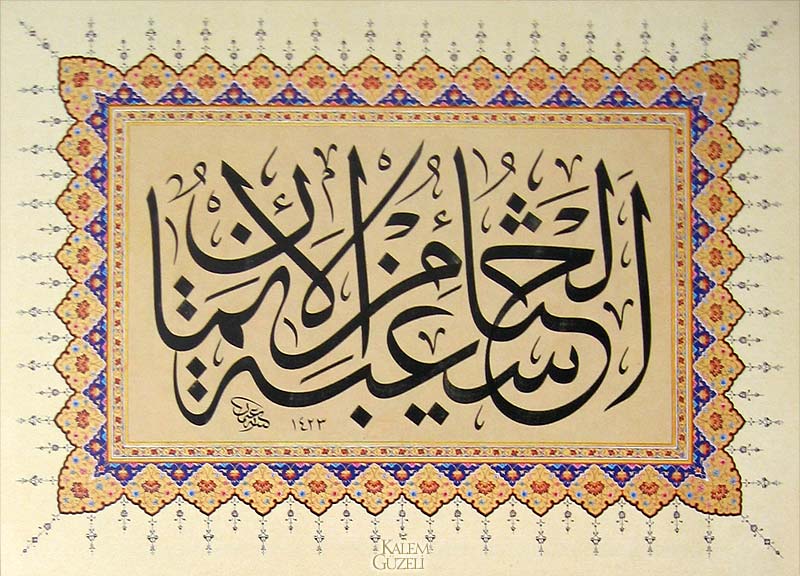 الحياء شعبة من الإيمان
١٤٢٣
KALEM
GÜZELİ